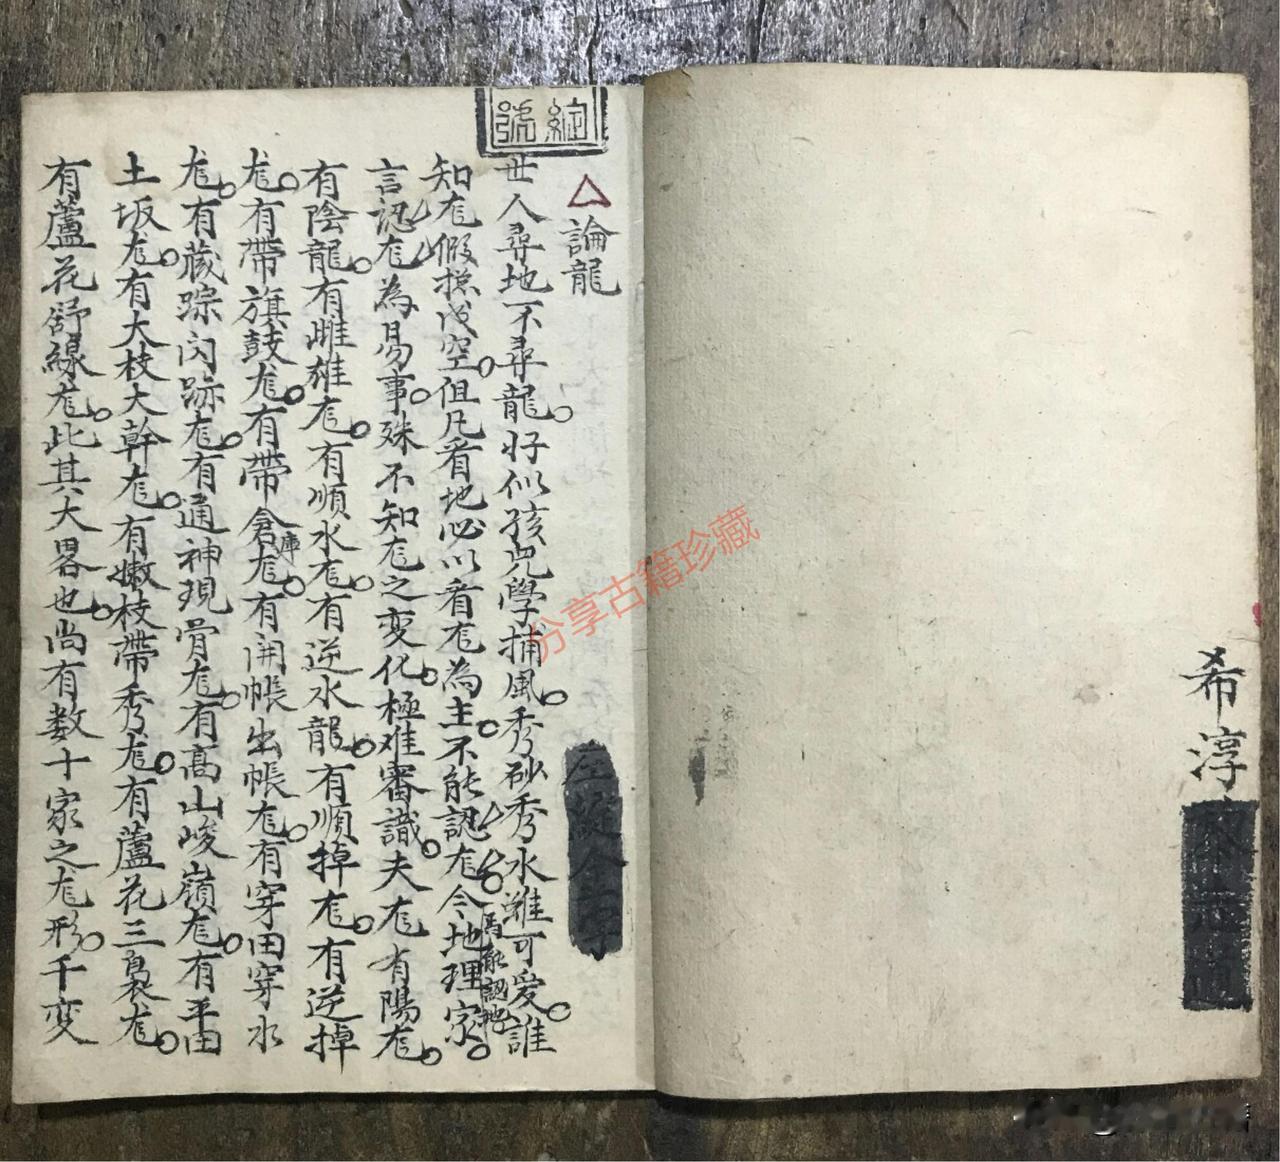 希淳
綻號
論龍
世人尋地不尋龍好似孩児學捕風秀砂秀水雖可爱誰
知龙假捴成空但凡看地必以看龙為主不能認龙今地理家
焉能認地
言認龙為易事殊不知龙之变化極难審識夫龙有陽龙
有陰龍有雌雄龙有順水龙有逆水龍有順掉龙有逆掉
龙有帶旗鼓龙有帶倉庫龙有開帳出帳龙有穿田穿水
龙有藏踪闪跡龙有通神現骨龙有高山峻嶺龙有平田
土坂龙有大枝大幹龙有嫩枝帶秀龙有蘆花三裊龙
有蘆花舒線龙此其大畧也尚有数十家之龙形千变
分享古籍珍藏